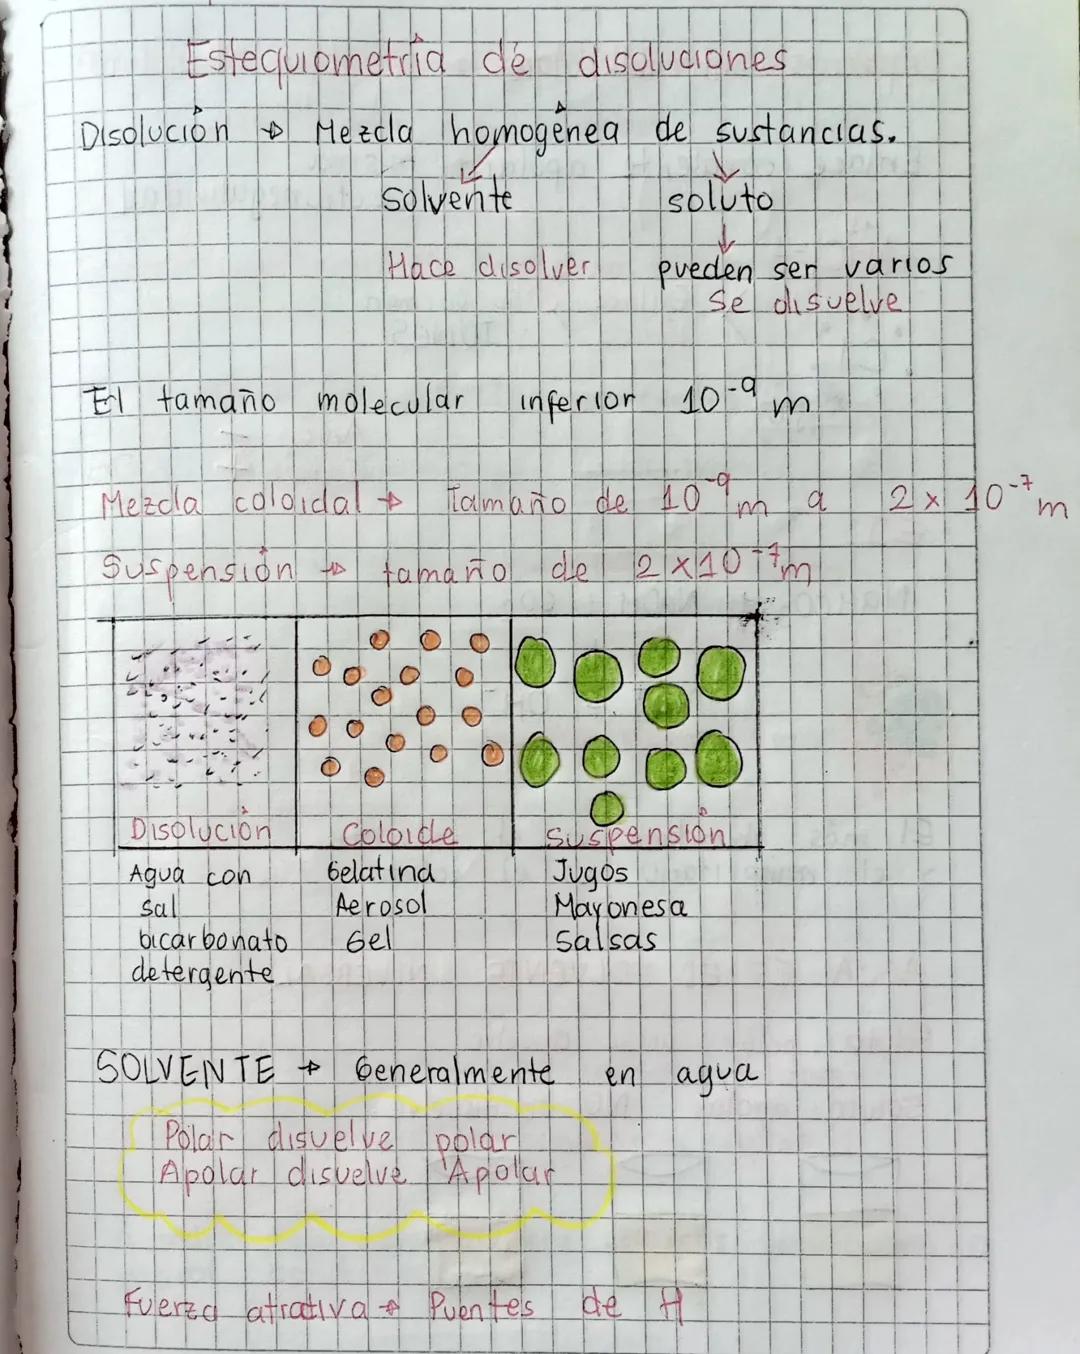 Estequiometría de disoluciones
Disolución → Mezcla homogénea de sustancias.
solvente soluto
Hace disolver pueden ser varios
se disuelve
El tamaño molecular inferior 10⁻⁹ m
Mezcla coloidal → Tamaño de 10⁻⁹ m a 2 x 10⁻⁷ m
Suspensión → tamaño de 2 x 10⁻⁷ m
Disolución Coloide Suspensión
Agua con Gelatina Jugos
sal Aerosol Mayonesa
bicarbonato Gel Salsas
detergente
SOLVENTE → Generalmente en agua
Polar disuelve polar
Apolar disuelve Apolar
Fuerza atrativa → Puentes de H